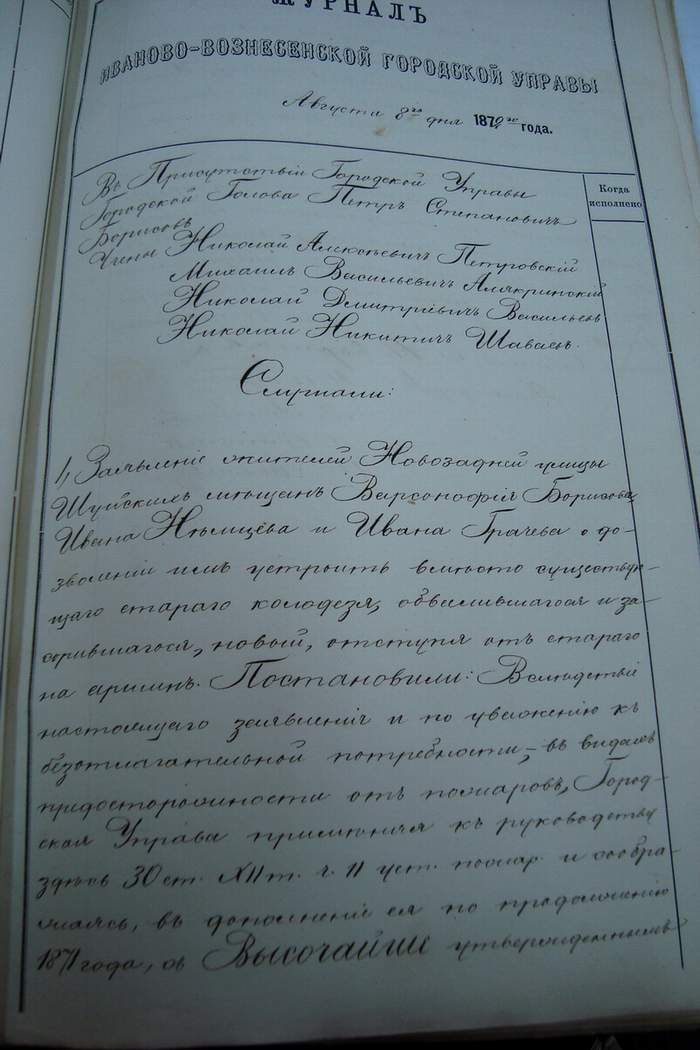 ЖУРНАЛЪ
ИВАНОВО-ВОЗНЕСЕНСКОЙ ГОРОДСКОЙ УПРАВЫ
Августа 8го дня 187 года.
Когда
исполнено
Въ Присутствіи Городской Управы
Городской Голова Петръ Степановичъ
Борисовъ
Члены Николай Алексѣевичъ Петровскій
Михаилъ Васильевичъ Алякринскій
Николай Дмитріевичъ Васильевъ
Николай Никитичъ Шаваевъ.
Слушали:
1, Заявленіе жителей Новозадней улицы
Шуйскихъ мѣщанъ Варсонофія Борисова,
Ивана Нѣмцева и Ивана Грачева о до-
зволеніи имъ устроить вмѣсто существую-
щаго стараго колодезя, обвалившагося и за-
сорившагося, новый, отступя отъ стараго
на аршинъ. Постановили: Вслѣдствіе
настоящаго заявленія и по уваженію къ
безотлагательной потребности, въ видахъ
предосторожности отъ пожаровъ, Город-
ская Управа примѣняя къ руководству
здѣсь 30 ст. XII т. ч. II уст. пожар. и сообра-
жаясь, въ дополненіе ея по продолженію
1871 года, съ Высочайше утвержденнымъ